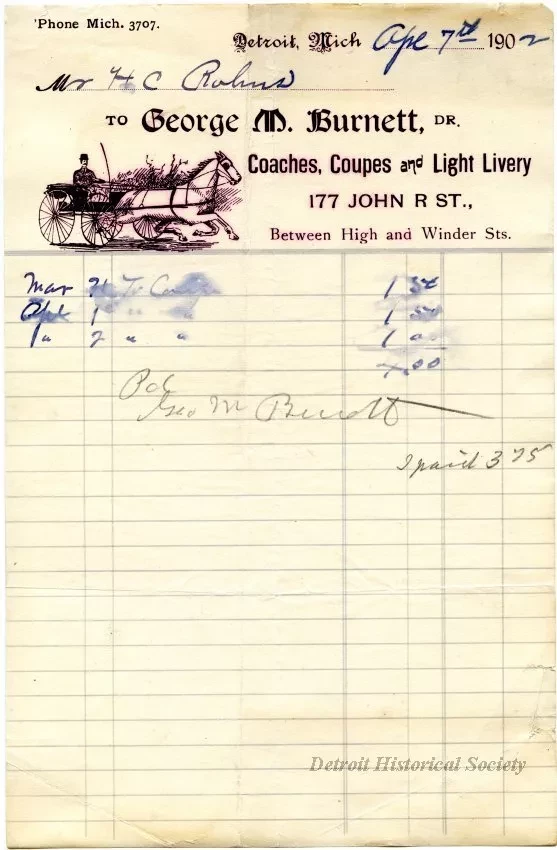 'Phone Mich. 3707.
Detroit, Mich Apl 7th 1902
Mr H C Rohns
TO George M. Burnett, DR.
Coaches, Coupes and Light Livery
177 JOHN R ST.,
Between High and Winder Sts.
Mar To 1 50
Apl 1 " " 1 50
" 2 " " 1 00
4.00
Pd
Geo M Burnett
I paid 3 75
Detroit Historical Society